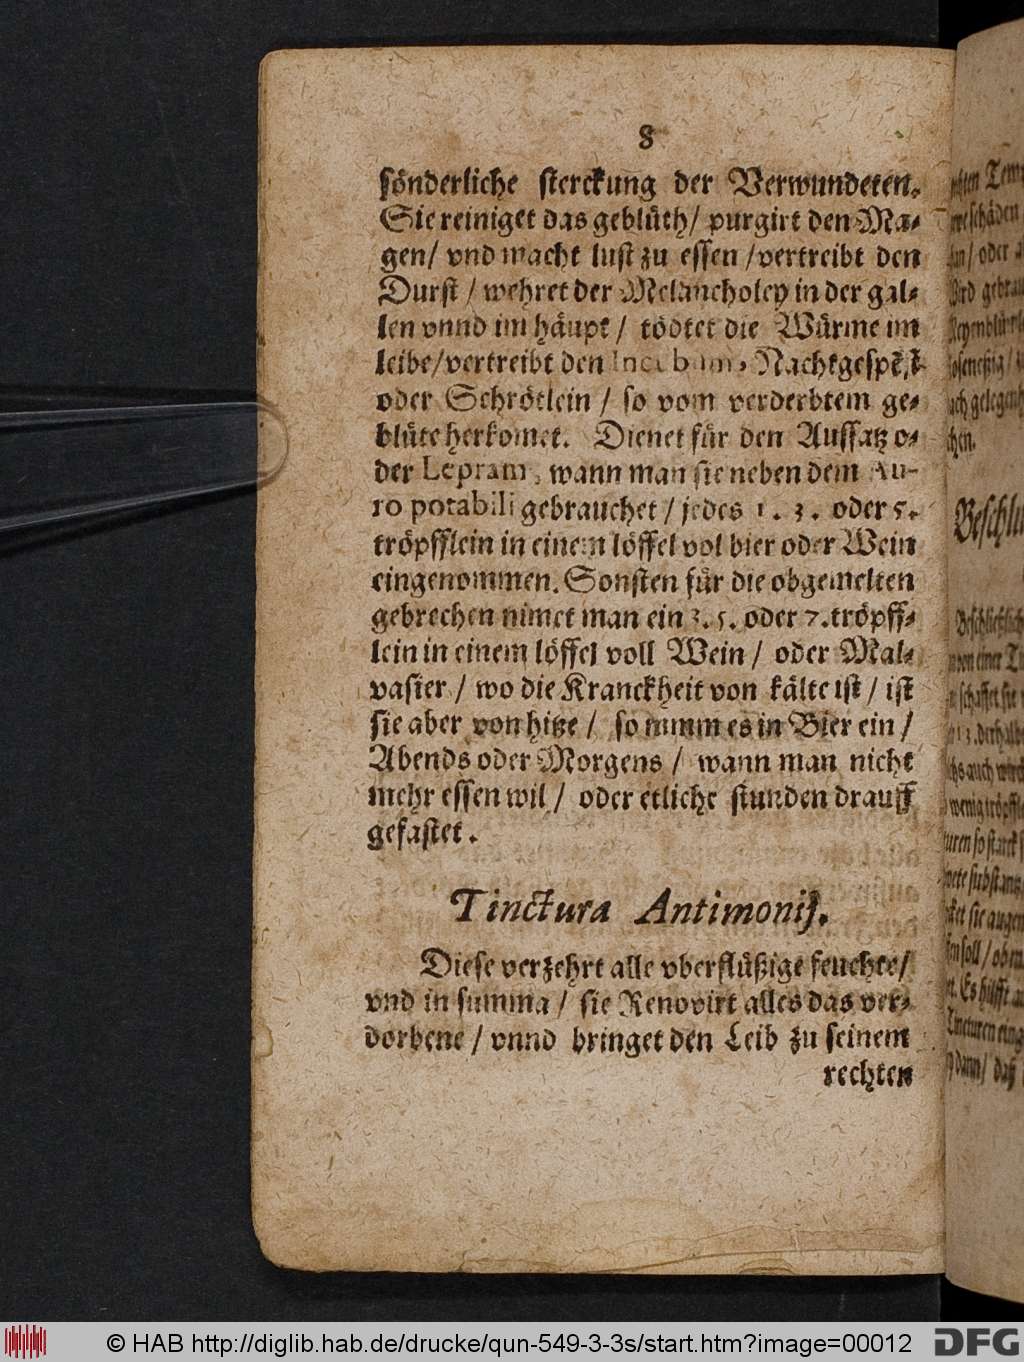 8
sönderliche sterckung der Verwundeten.
Sie reiniget das geblüth / purgirt den Ma-
gen / vnd macht lust zu essen / vertreibt den
Durst / wehret der Melancholey in der gal-
len vnnd im häupt / tödtet die Würme im
leibe / vertreibt den Incubum, Nachtgespẽst
oder Schrötlein / so vom verderbtem ge-
blüte herkomet. Dienet für den Aussatz o-
der Lepram, wann man sie neben dem Au-
ro potabili gebrauchet / jedes 1. 3. oder 5.
tröpfflein in einem löffel vol bier oder Wein
eingenommen. Sonsten für die obgemelten
gebrechen nimet man ein 3. 5. oder 7. tröpff-
lein in einem löffel voll Wein / oder Mal-
vasier / wo die Kranckheit von kälte ist / ist
sie aber von hitze / so nimm es in Bier ein /
Abends oder Morgens / wann man nicht
mehr essen wil / oder etliche stunden drauff
gefastet.
Tinctura Antimonij.
Diese verzehrt alle vberflüßige feuchte /
vnd in summa / sie Renovirt alles das ver-
dorbene / vnnd bringet den Leib zu seinem
rechten
Beschlu
© HAB http://diglib.hab.de/drucke/qun-549-3-3s/start.htm?image=00012
DFG